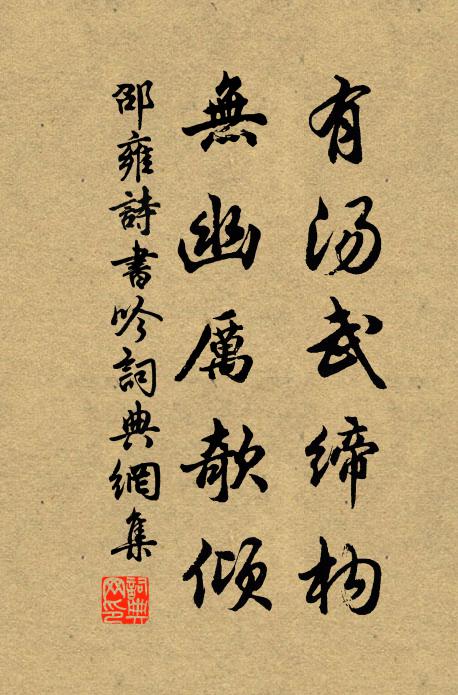 有汤武缔构
無幽厲欹傾
邵雍詩書吟詞典網集
詞典网印